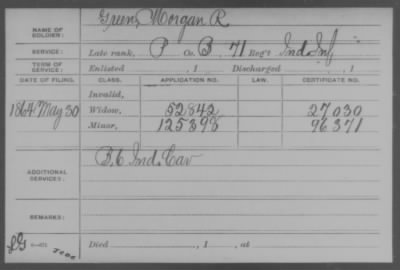 NAME OF SOLDIER: Green, Morgan R
SERVICE: Late rank, P Co. B, 71 Reg't Ind Inf
TERM OF SERVICE: Enlisted , 1 Discharged , 1
DATE OF FILING. CLASS. APPLICATION NO. LAW. CERTIFICATE NO.
Invalid,
1864 May 30 Widow, 52842 27030
Minor, 125398 96371
ADDITIONAL SERVICES: B. 6 Ind. Cav
REMARKS:
Died , 1 , at